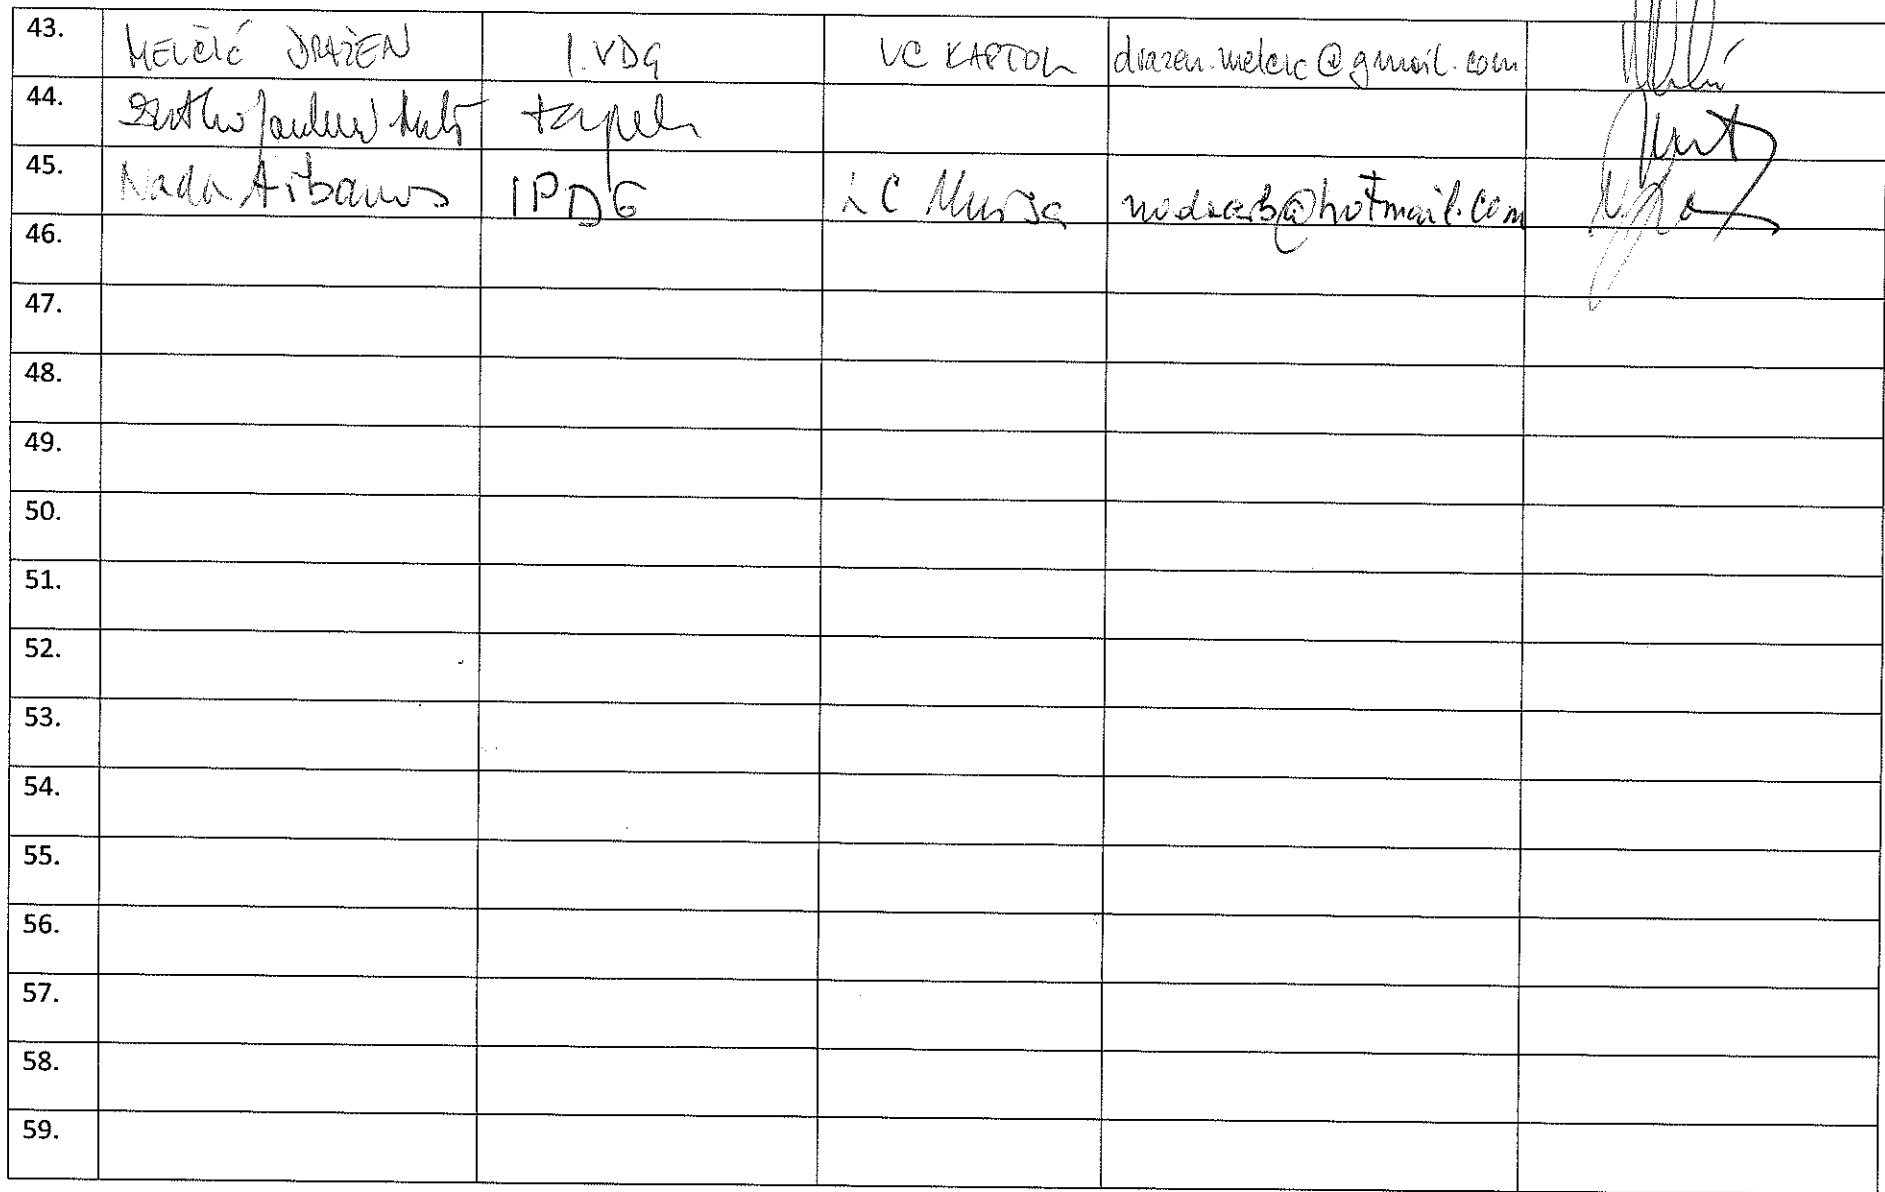 43. MELČIĆ DRAŽEN I.VDG LC KAPTOL drazen.melcic@gmail.com
44.
45. Nada Arbanas IPDG LC Mursa nadaarb@hotmail.com
46.
47.
48.
49.
50.
51.
52.
53.
54.
55.
56.
57.
58.
59.